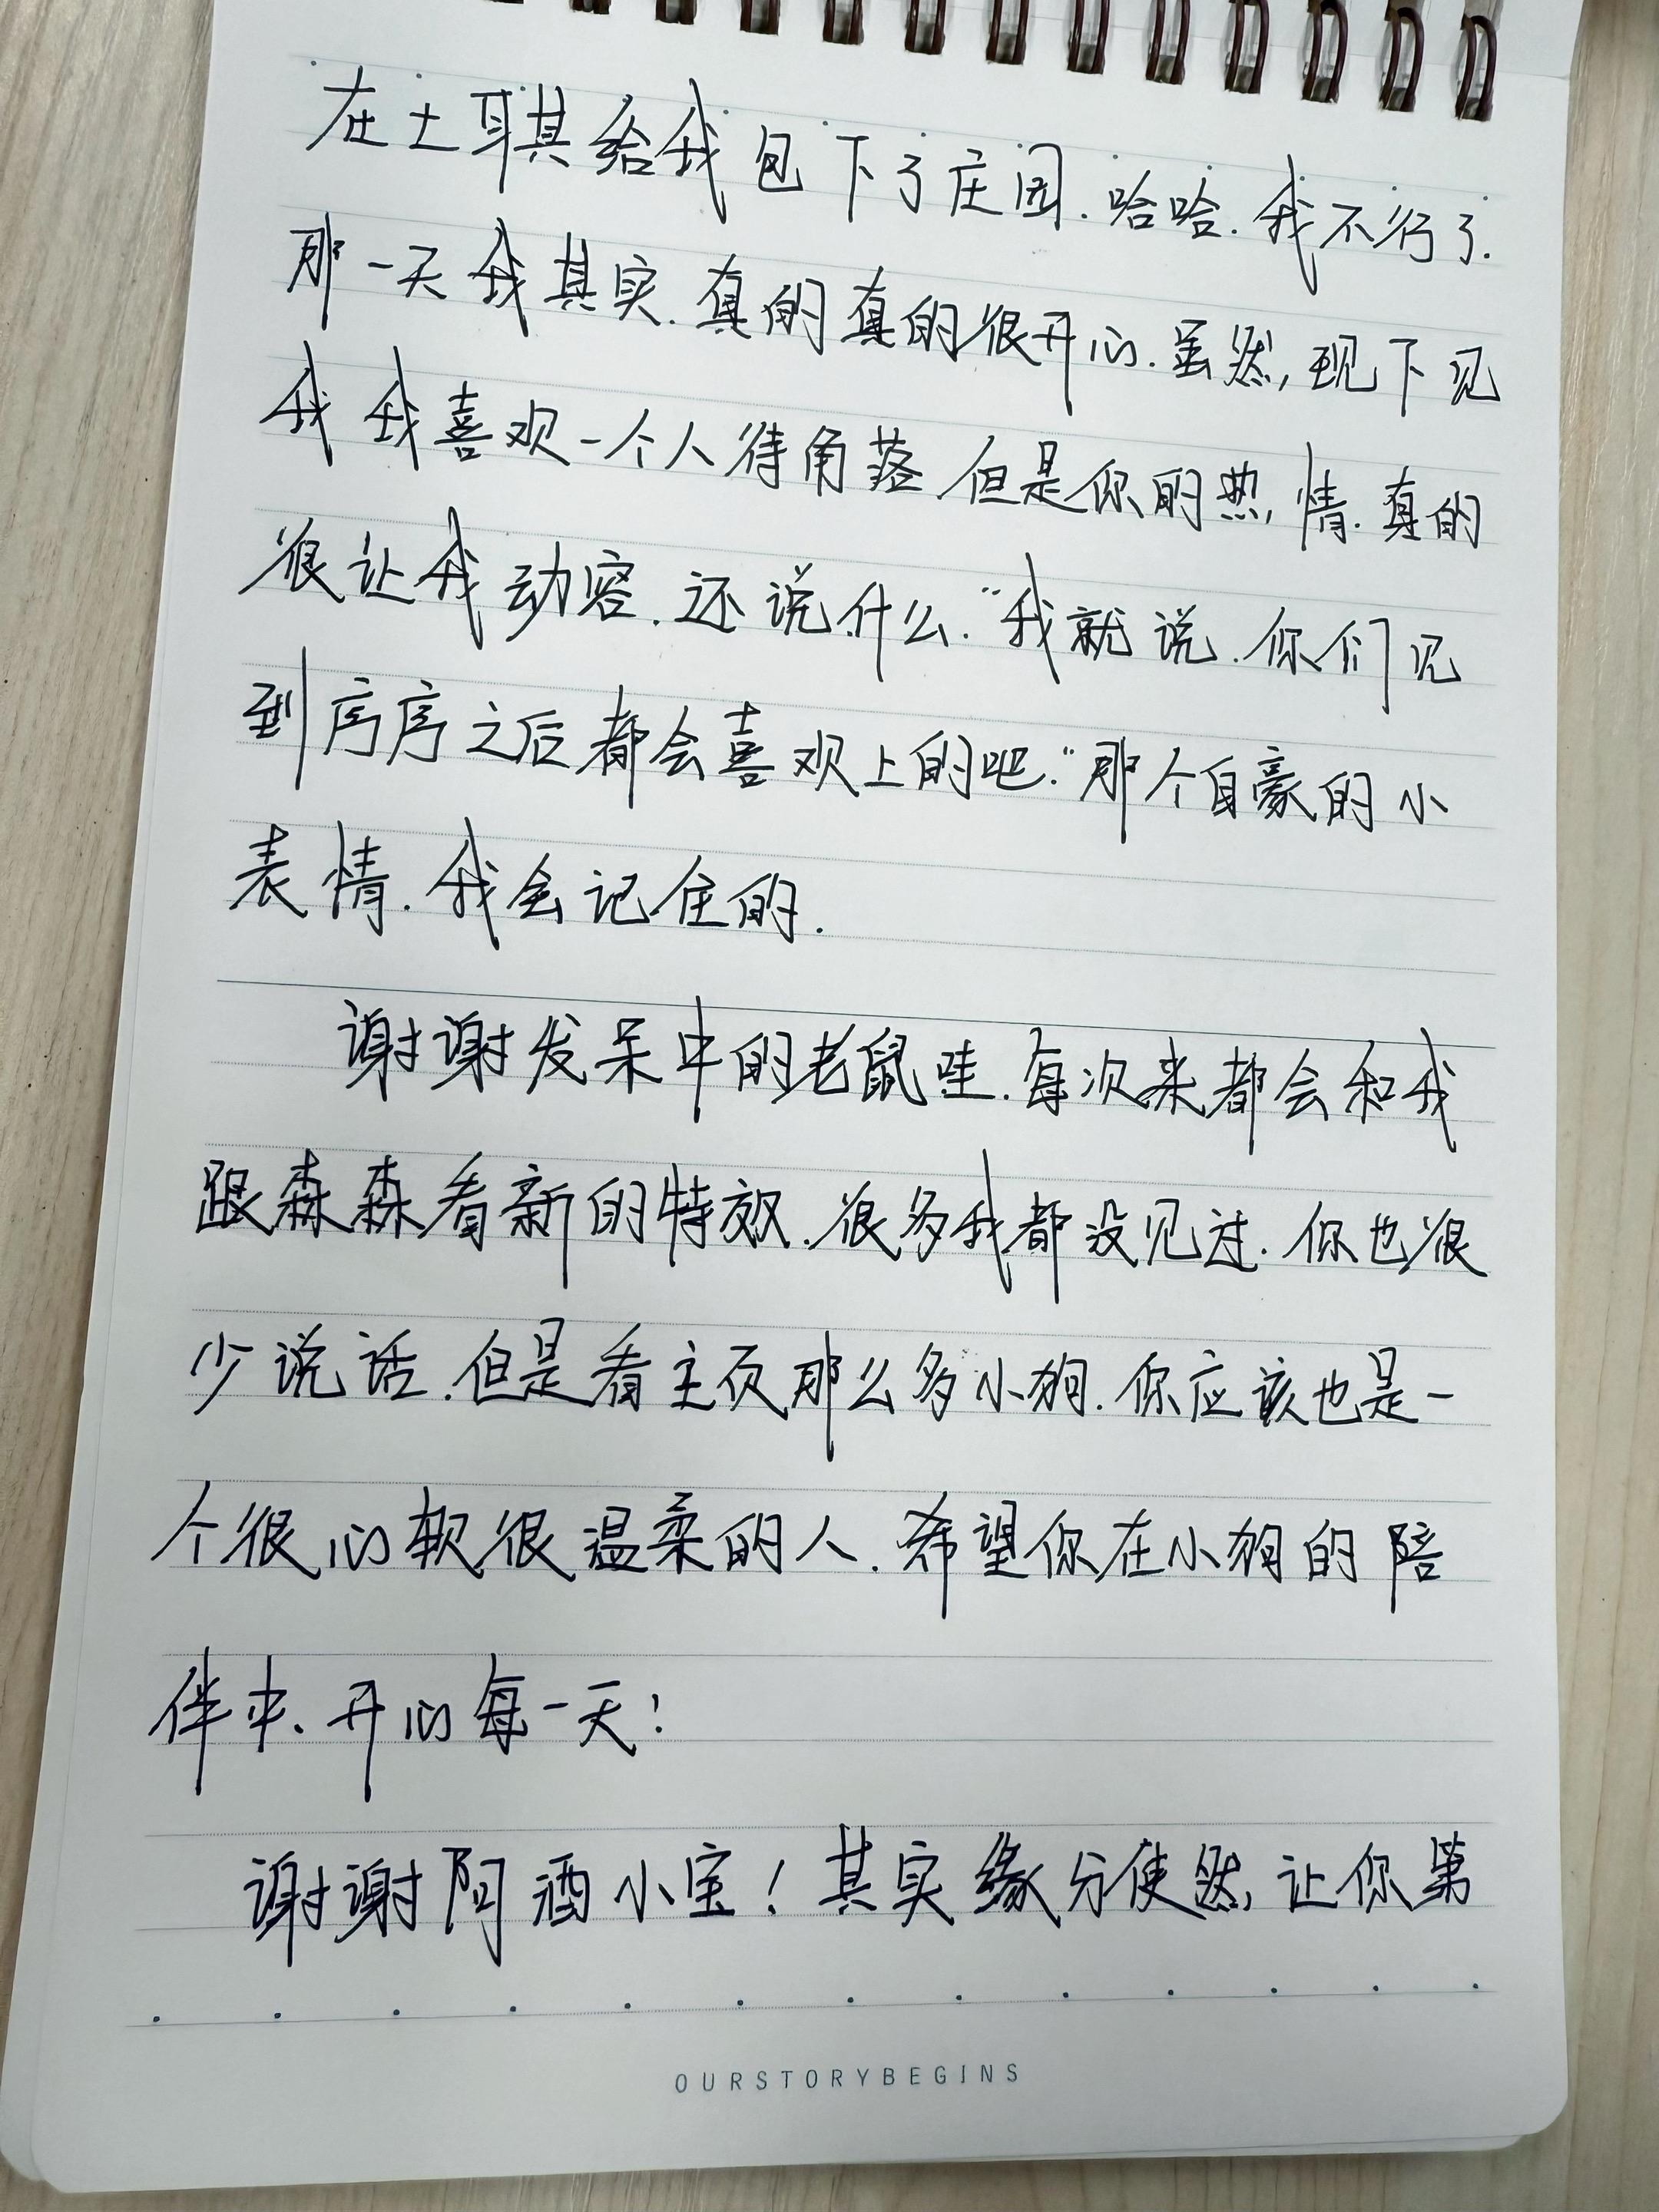 在土耳其给我包下了庄园.哈哈.我不行了.
那一天我其实.真的真的很开心.虽然,现下见
我我喜欢一个人待角落.但是你的热情.真的
很让我动容.还说什么."我就说.你们见
到序序之后都会喜欢上的吧."那个自豪的小
表情.我会记住的.
谢谢发呆中的老鼠哇.每次来都会和我
跟森森看新的特效.很多我都没见过.你也很
少说话.但是看主页那么多小狗.你应该也是一
个很心软很温柔的人.希望你在小狗的陪
伴中、开心每一天!
谢谢阿酒小宝!其实缘分使然,让你第
OURSTORYBEGINS